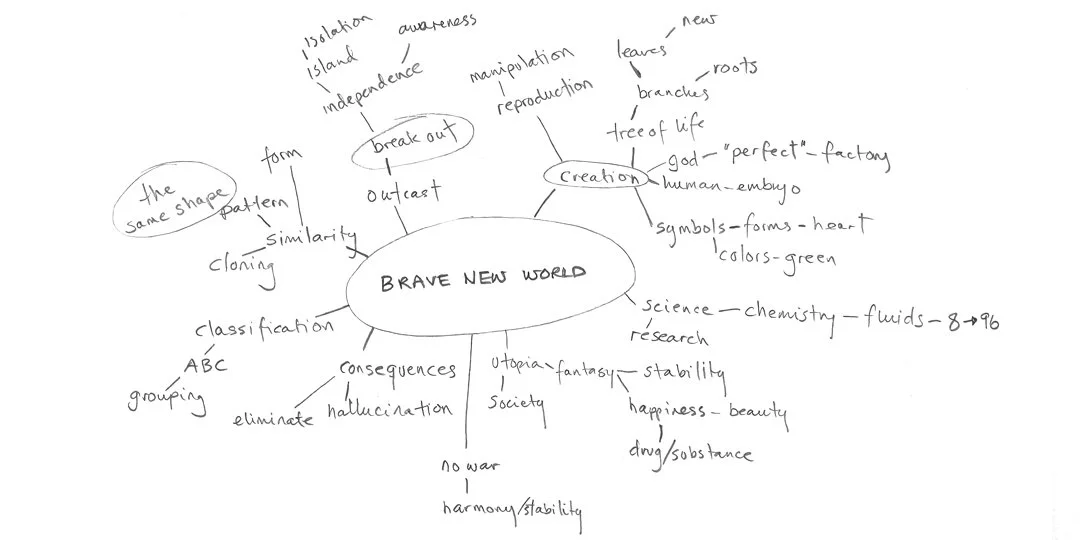 isolation
island
independence
awareness
break out
outcast
manipulation
reproduction
new
leaves
roots
branches
tree of life
creation
god - "perfect" - factory
human - embryo
symbols - forms - heart
colors - green
form
the
same shape
pattern
similarity
cloning
BRAVE NEW WORLD
classification
ABC
grouping
consequences
eliminate
hallucination
utopia - fantasy - stability
society
happiness - beauty
drug/substance
science - chemistry - fluids - 8 → 96
research
no war
harmony/stability